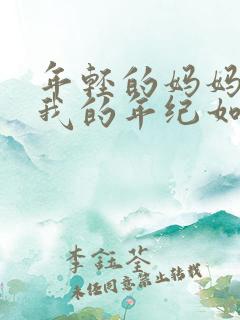 年轻的妈妈
我的年纪如
李钰荃
未经同意禁止转载